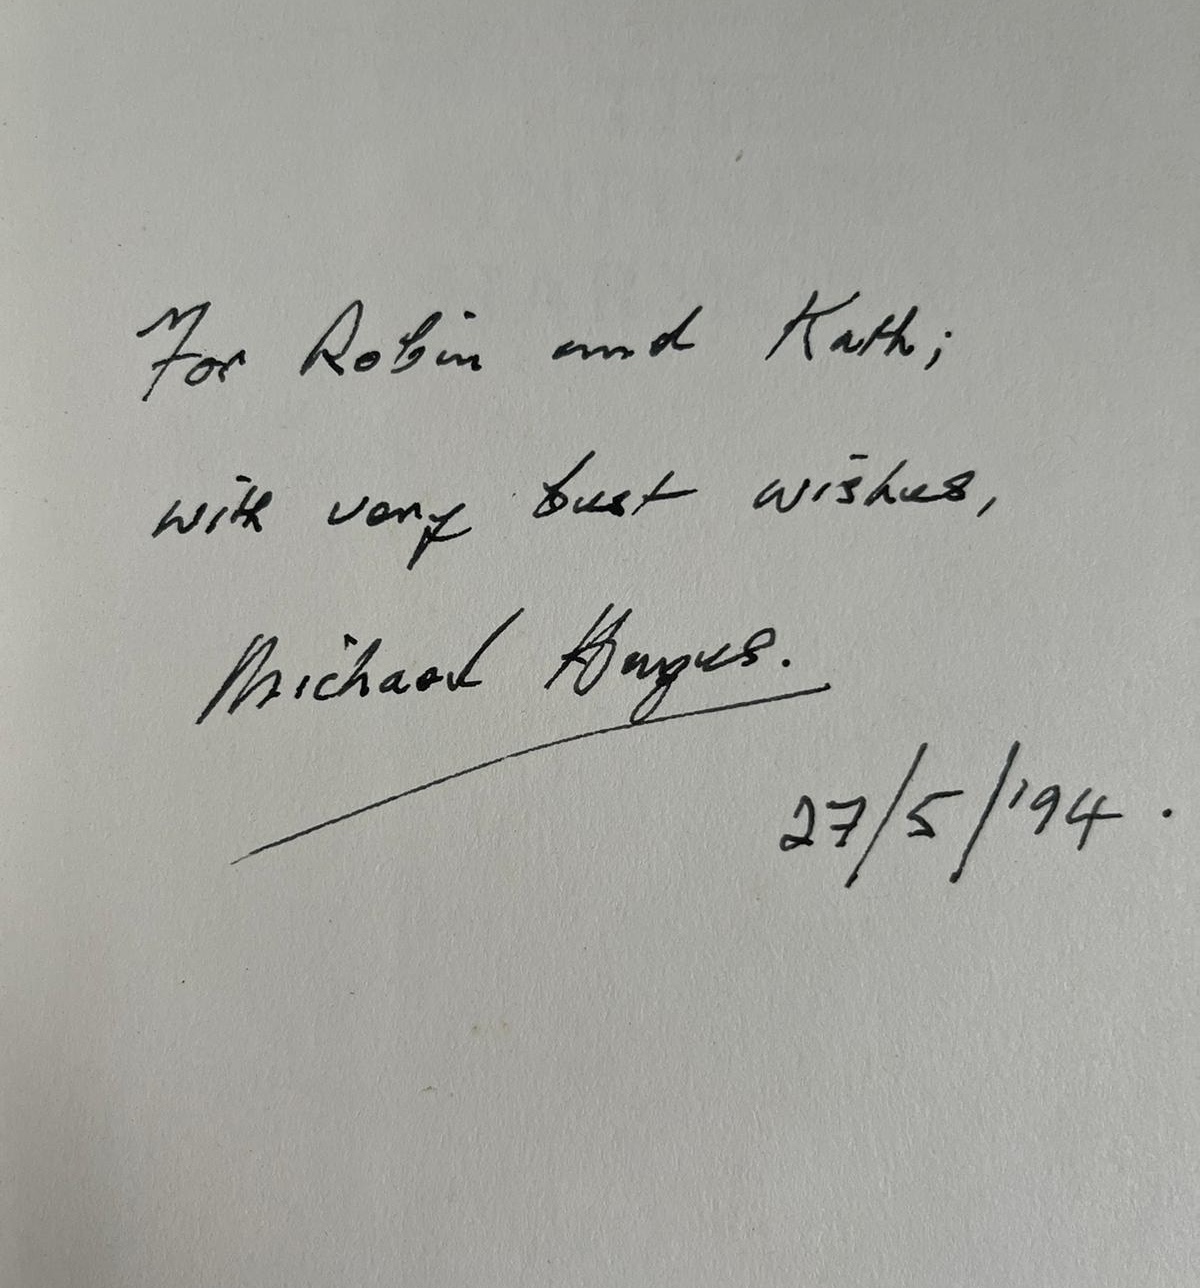 For Robin and Kath;
with very best wishes,
Michael
27/5/'94.